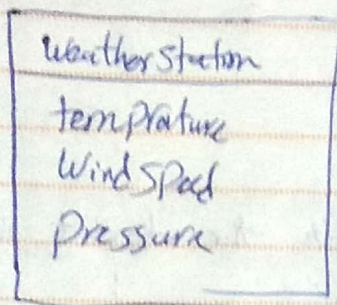 Weather Station
temprature
Wind Spead
Pressure